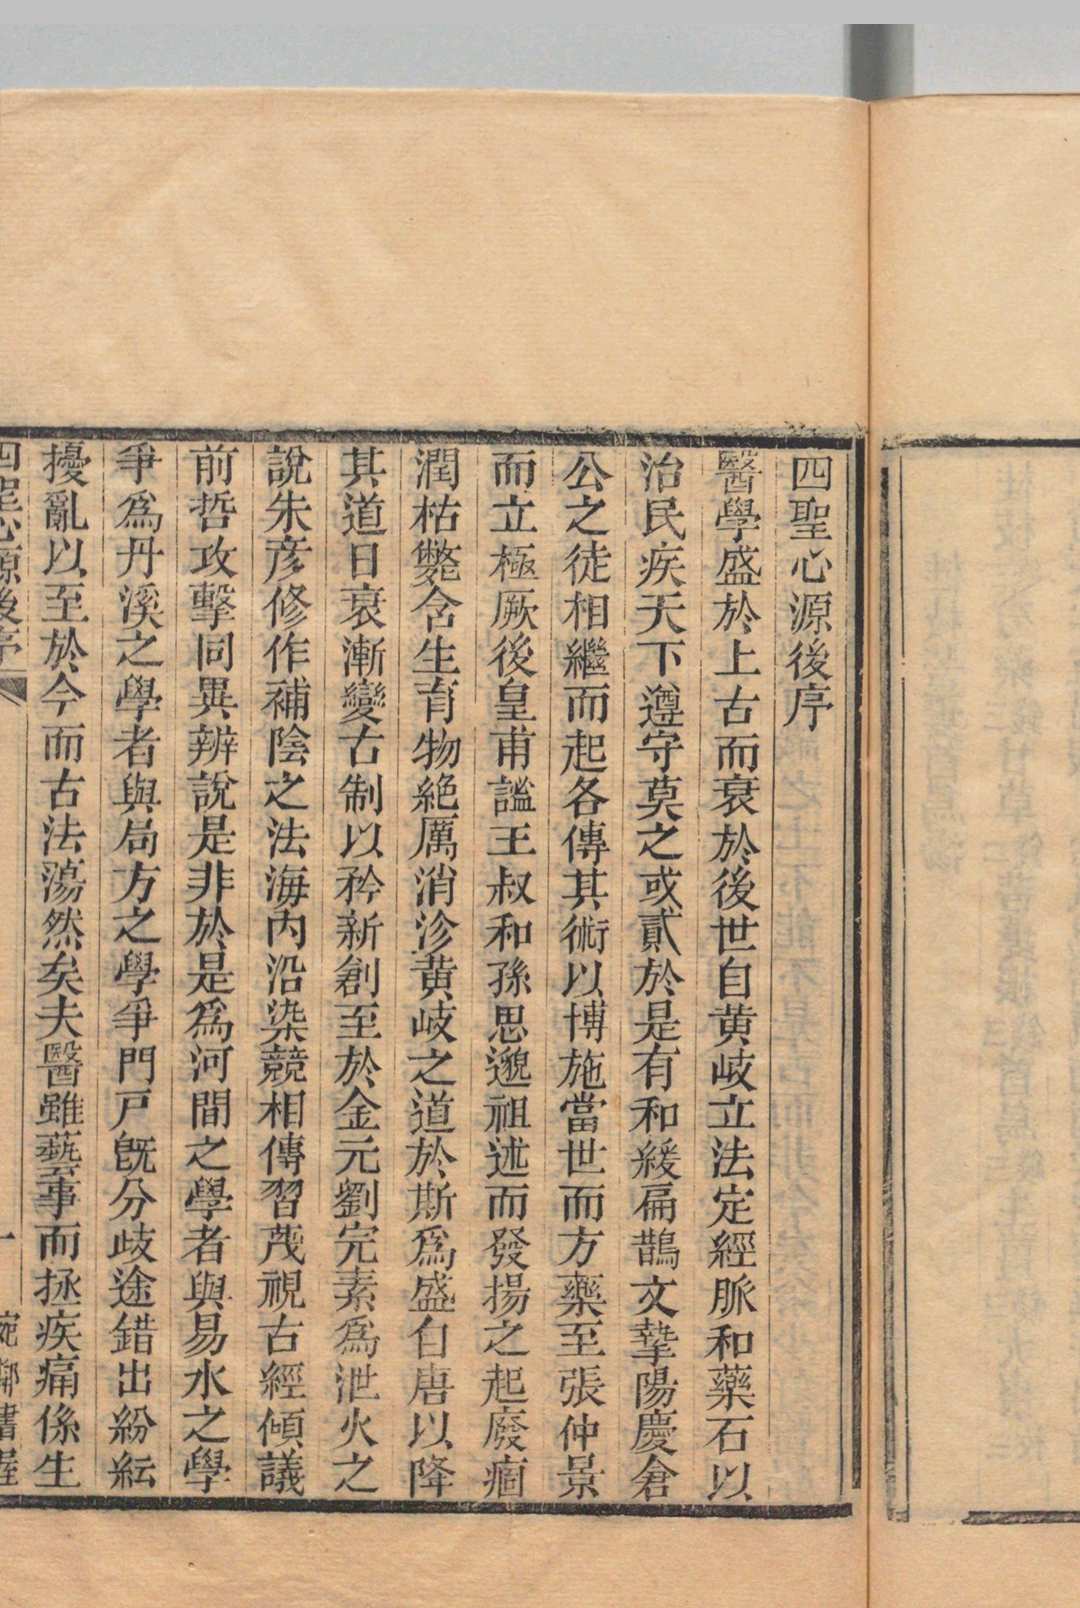 四聖心源後序
醫學盛於上古而衰於後世自黃岐立法定經脈和藥石以
治民疾天下遵守莫之或貳於是有和緩扁鵲文摯陽慶倉
公之徒相繼而起各傳其術以博施當世而方藥至張仲景
而立極厥後皇甫謐王叔和孫思邈祖述而發揚之起廢痼
潤枯斃含生育物絕厲消沴黃岐之道於斯爲盛自唐以降
其道日衰漸變古制以矜新創至於金元劉完素爲泄火之
說朱彥修作補陰之法海內沿染競相傳習茂視古經傾議
前哲攻擊同異辨說是非於是爲河間之學者與易水之學
爭爲丹溪之學者與局方之學爭門戶旣分歧途錯出紛紜
擾亂以至於今而古法蕩然矣夫醫雖藝事而拯疾痛係生
四聖心源後序 一 宛鄰書屋